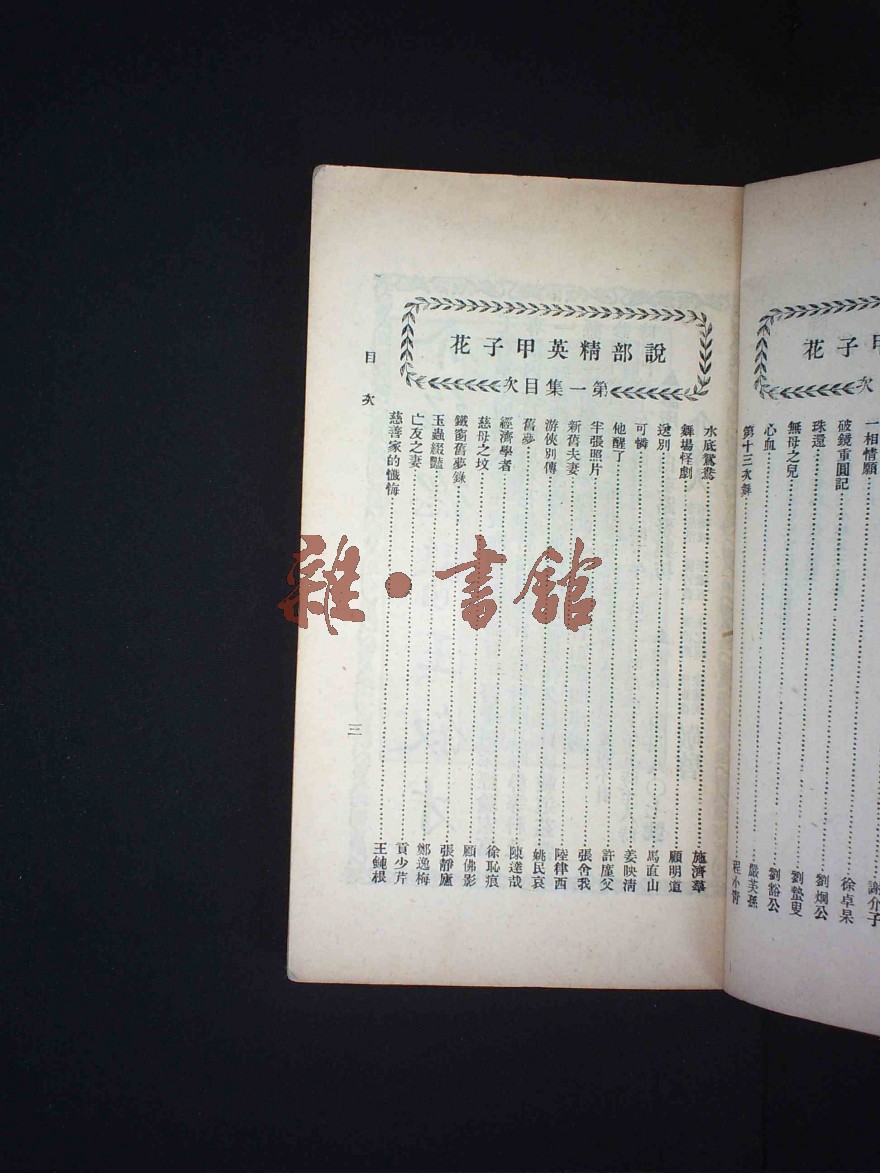 花子甲
次
謝介子
一相情願 徐卓呆
破鏡重圓記 劉烱公
珠還 劉蟄叟
無母之兒 劉豁公
心血 嚴芙孫
第十三次舞 程小青
說部精英甲子花
第一集目次
水底鴛鴦 施濟羣
舞場怪劇 顧明道
送別 馬直山
可憐 姜映清
他醒了 許廑父
半張照片 張舍我
新舊夫妻 陸律西
游俠別傳 姚民哀
舊夢 陳達哉
經濟學者 徐恥痕
慈母之坟 顧佛影
鐵窗舊夢錄 張靜廬
玉蟲綴豔 鄭逸梅
亡友之妻 貢少芹
慈善家的懺悔 王鈍根
目次
三
雜·書館